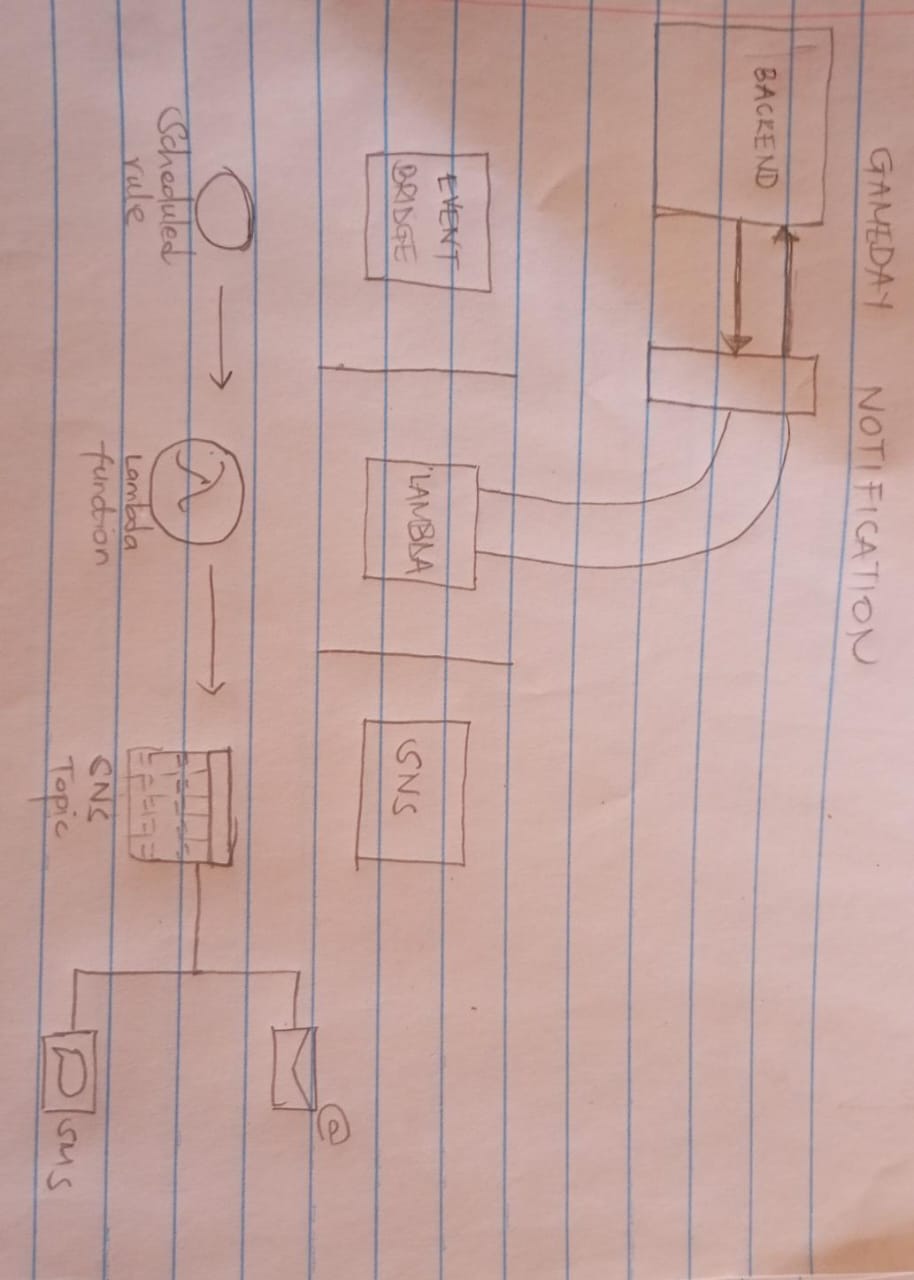 GAMEDAY NOTIFICATION
BACKEND
EVENT
BRIDGE
LAMBDA
SNS
@
Scheduled
rule
Lambda
function
SNS
Topic
SMS